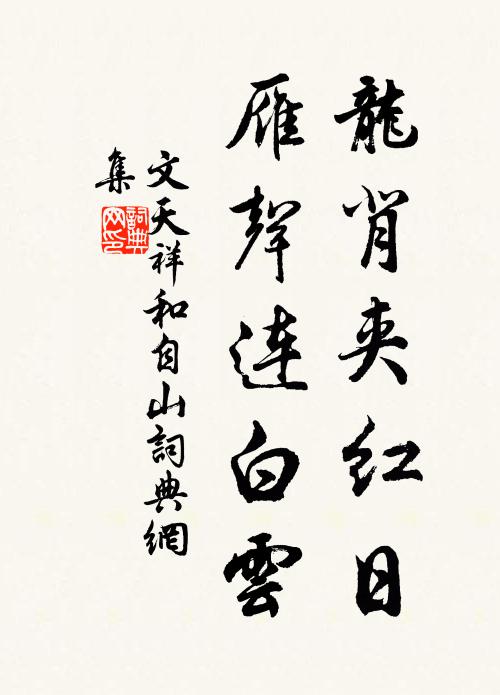 龍背夾紅日
雁聲連白雲
文天祥和自山詞典網
集
詞典
网印